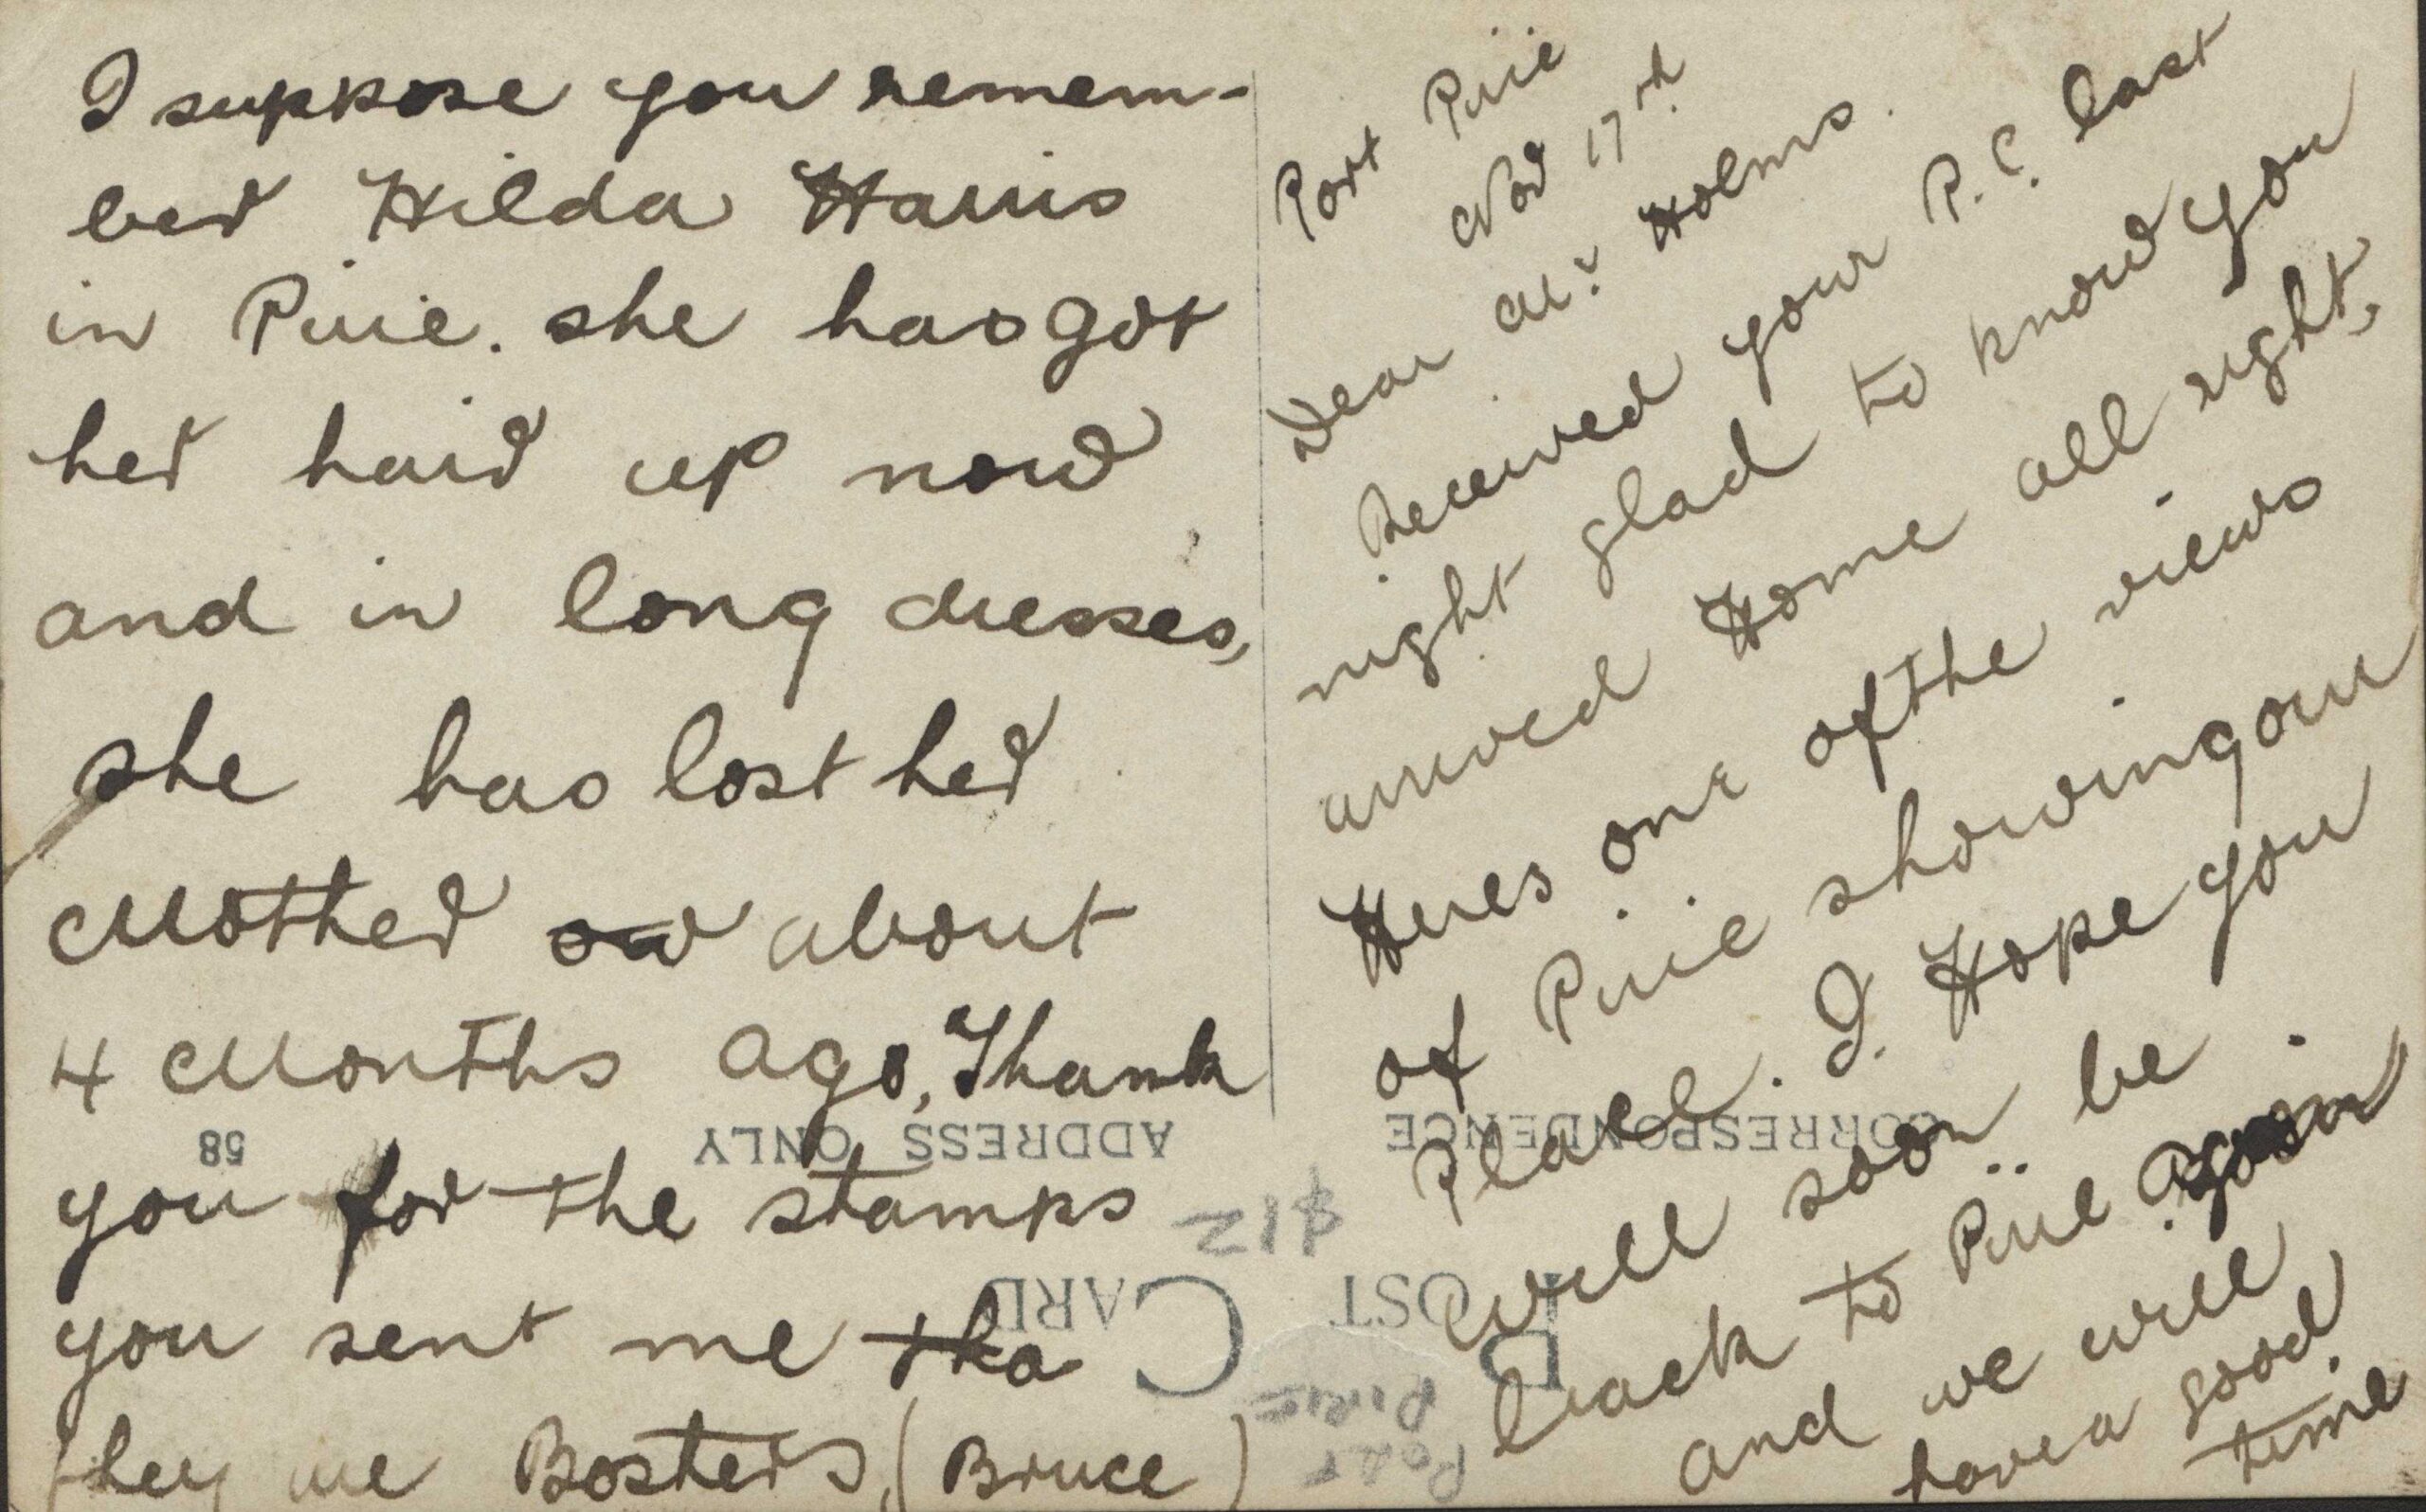 Port Pirie
Nov 17th
Dear Mr Holms.
Received your P.C. last
night glad to know you
arrived Home all right,
Heres one of the views
of Pirie showing our
Place. I. Hope you
will soon be
back to Pirie Again
and we will
have a good
time
I suppose you remem-
ber Hilda Harris
in Pirie. she has got
her hair up now
and in long dresses,
she has lost her
Mother or about
4 Months ago, Thank
you for the stamps
you sent me tha
they are Bosters, (Bruce)
CORRESPONDENCE
ADDRESS ONLY
58
$12
POST CARD
PORT
PIRIE